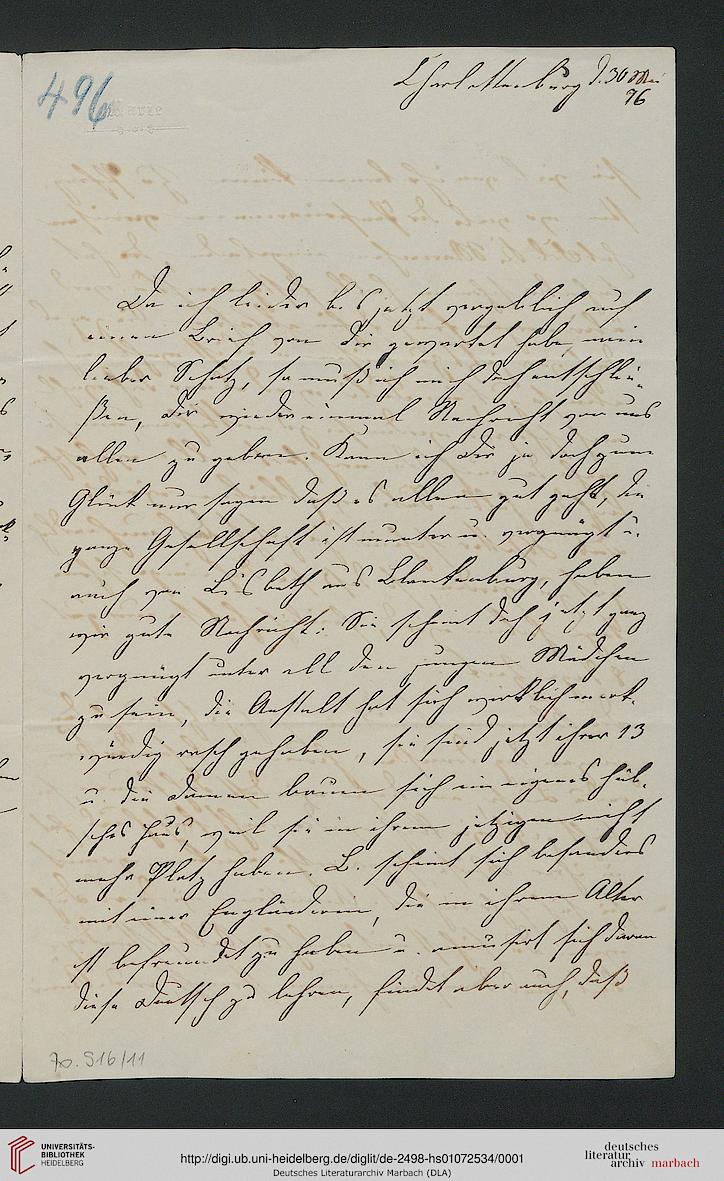 496
Charlottenburg d. 30 Mai
76
Da ich leider bis jetzt vergeblich auf
einen Brief von Dir gewartet habe, mein
lieber Schatz, so muß ich mich doch entschlie-
ßen, Dir wieder einmal Nachricht von uns
allen zu geben. Kann ich Dir ja doch zum
Glück nur sagen daß es allen gut geht, die
ganze Gesellschaft ist munter u. vergnügt u.
auch von Lisbeth aus Blankenburg, haben
wir gute Nachricht. Sie scheint doch jetzt ganz
vergnügt unter all den jungen Mädchen
zu sein, die Anstalt hat sich wirklich merk-
würdig rasch gehoben, sie sind jetzt ihrer 13
u. die Damen bauen sich ein eigenes hüb-
sches Haus, weil sie in ihrem jetzigen nicht
mehr Platz haben. L. scheint sich besonders
mit einer Engländerin, die in ihrem Alter
ist befreundet zu haben u. amüsirt sich daran
diese Deutsch zu lehren, findet aber auch, daß
70.916/11
UNIVERSITÄTS-
BIBLIOTHEK
HEIDELBERG
http://digi.ub.uni-heidelberg.de/diglit/de-2498-hs01072534/0001
Deutsches Literaturarchiv Marbach (DLA)
deutsches
literatur
archiv marbach